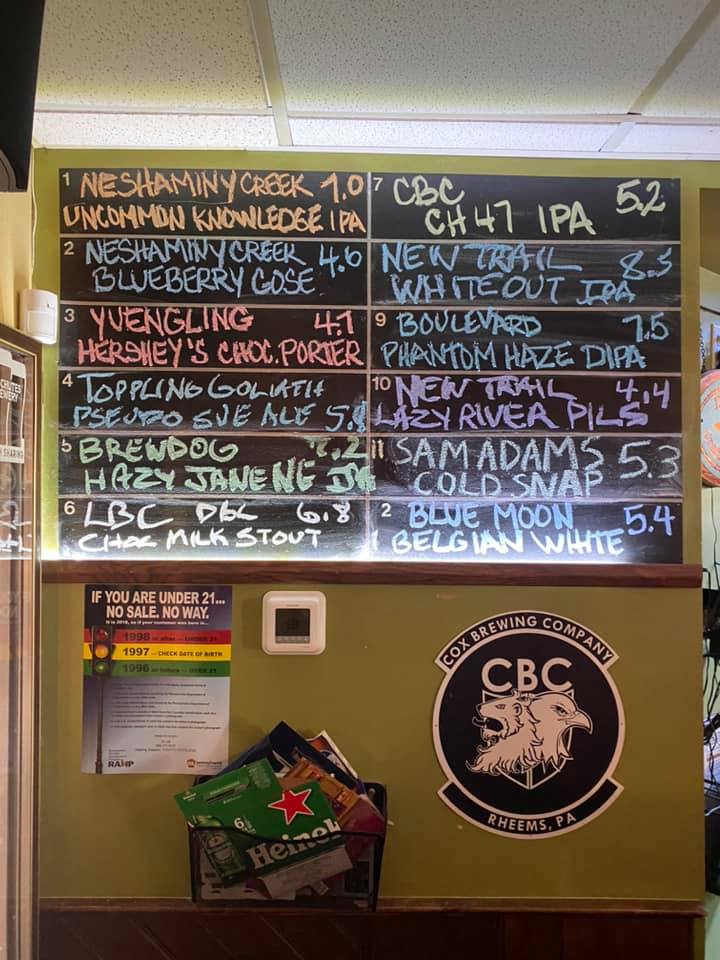 1 NESHAMINY CREEK 7.0
UNCOMMON KNOWLEDGE IPA
2 NESHAMINY CREEK 4.6
BLUEBERRY GOSE
3 YUENGLING 4.7
HERSHEY'S CHOC. PORTER
4 TOPPLING GOLIATH
PSEUDO SUE ALE
5 BREWDOG 7.2
HAZY JANE NE IPA
6 LBC DBL 6.8
CHOC MILK STOUT
7 CBC 5.2
CH 47 IPA
NEW TRAIL 8.5
WHITEOUT IPA
9 BOULEVARD 7.5
PHANTOM HAZE DIPA
10 NEW TRAIL 4.4
LAZY RIVER PILS
11 SAM ADAMS 5.3
COLD SNAP
2 BLUE MOON 5.4
BELGIAN WHITE
IF YOU ARE UNDER 21...
NO SALE. NO WAY.
It is 2018, so if your customer was born in...
1998 or after — UNDER 21
1997 — CHECK DATE OF BIRTH
1996 or before — OVER 21
RAMP
6
Heineken
COX BREWING COMPANY
CBC
RHEEMS, PA